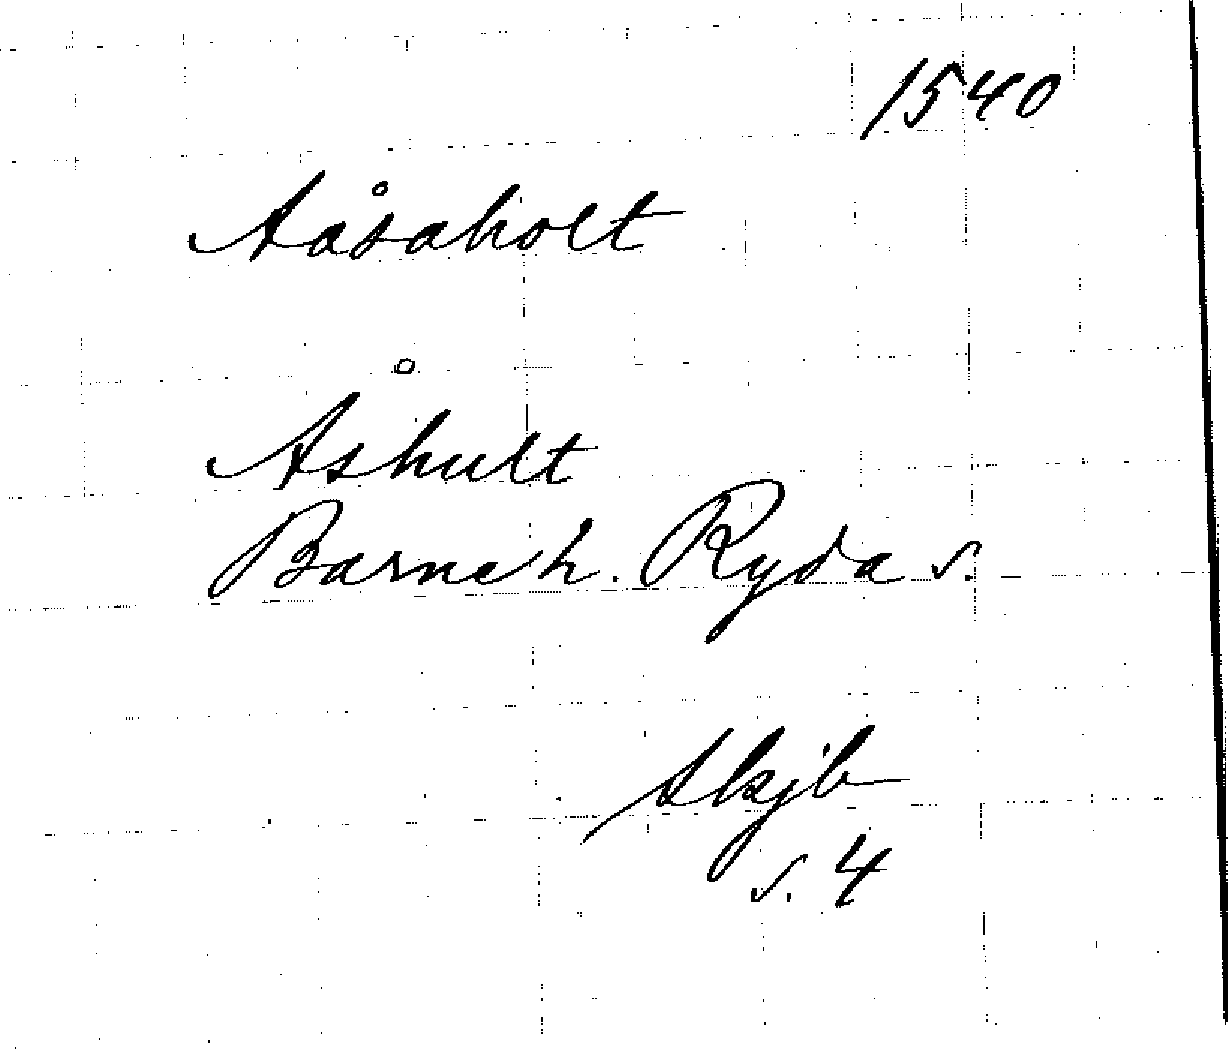 1540
Aåsaholt
Åshult
Barne h. Ryda s.
Skjb
s. 4